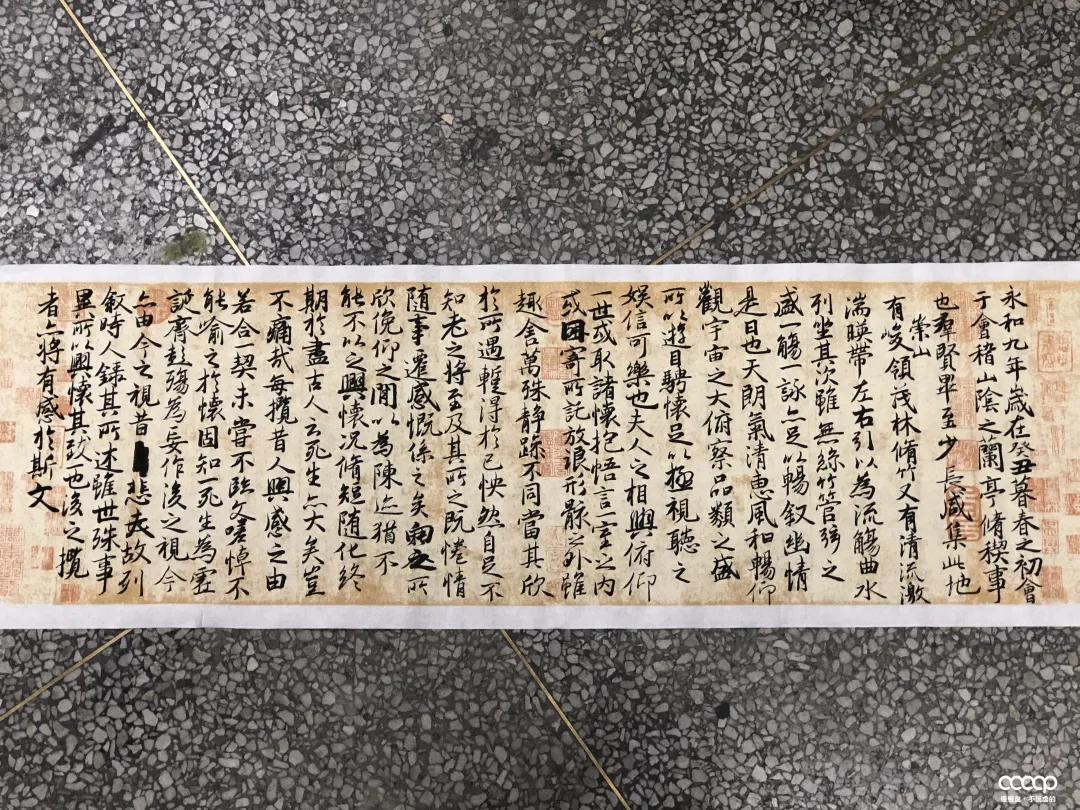 永和九年歲在癸丑暮春之初會
于會稽山陰之蘭亭脩稧事
也羣賢畢至少長咸集此地
崇山
有峻領茂林脩竹又有清流激
湍暎帶左右引以為流觴曲水
列坐其次雖無絲竹管弦之
盛一觴一詠亦足以暢叙幽情
是日也天朗氣清惠風和暢仰
觀宇宙之大俯察品類之盛
所以遊目騁懷足以極視聽之
娛信可樂也夫人之相與俯仰
一世或取諸懷抱悟言一室之內
或因寄所託放浪形骸之外雖
趣舍萬殊靜躁不同當其欣
於所遇蹔得於己怏然自足不
知老之將至及其所之既惓情
隨事遷感慨係之矣向之所
欣俛仰之間以為陳迹猶不
能不以之興懷況脩短隨化終
期於盡古人云死生亦大矣豈
不痛哉每攬昔人興感之由
若合一契未嘗不臨文嗟悼不
能喻之於懷固知一死生為虛
誕齊彭殤為妄作後之視今
亦由今之視昔悲夫故列
敘時人錄其所述雖世殊事
異所以興懷其致一也後之攬
者亦將有感於斯文